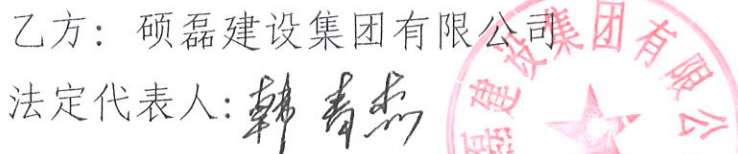 乙方：硕磊建设集团有限公司
法定代表人：韩青杰
磊建设集团有限公